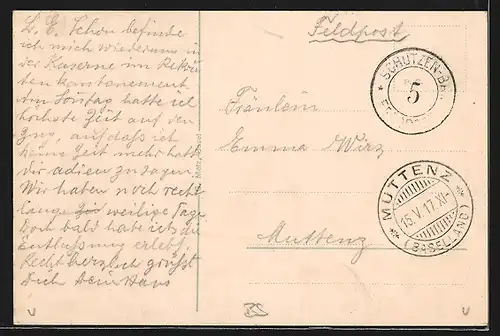 L. E. Schon befinde
ich mich wiederum in
der Kaserne im Rekru
tenkantonnement.
Am Sontag hatte ich
höchste Zeit auf den
Zug, aufdass ich
keine Zeit mehr hatte
dir adien zusagen.
Wir haben noch recht
lange weilige Tage.
Doch bald habe ich die
Entlassung erlebt.
Recht herzlich grüsst
Dich Dein Hans
Feldpost
* SCHÜTZEN-BAT.
5
Fräulein
Emma Wirz
Muttenz
MUTTENZ
15.V.17.XI-
(BASELLAND)
BS